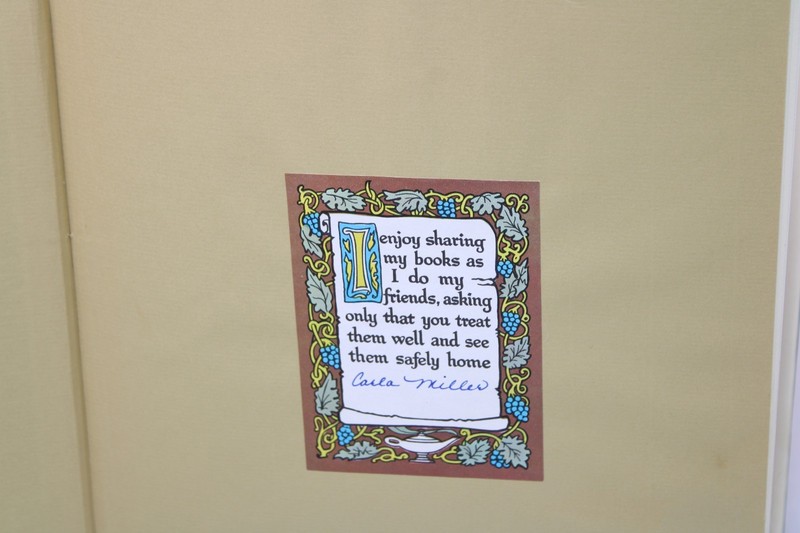 I enjoy sharing
my books as
I do my
friends, asking
only that you treat
them well and see
them safely home
Carla Miller